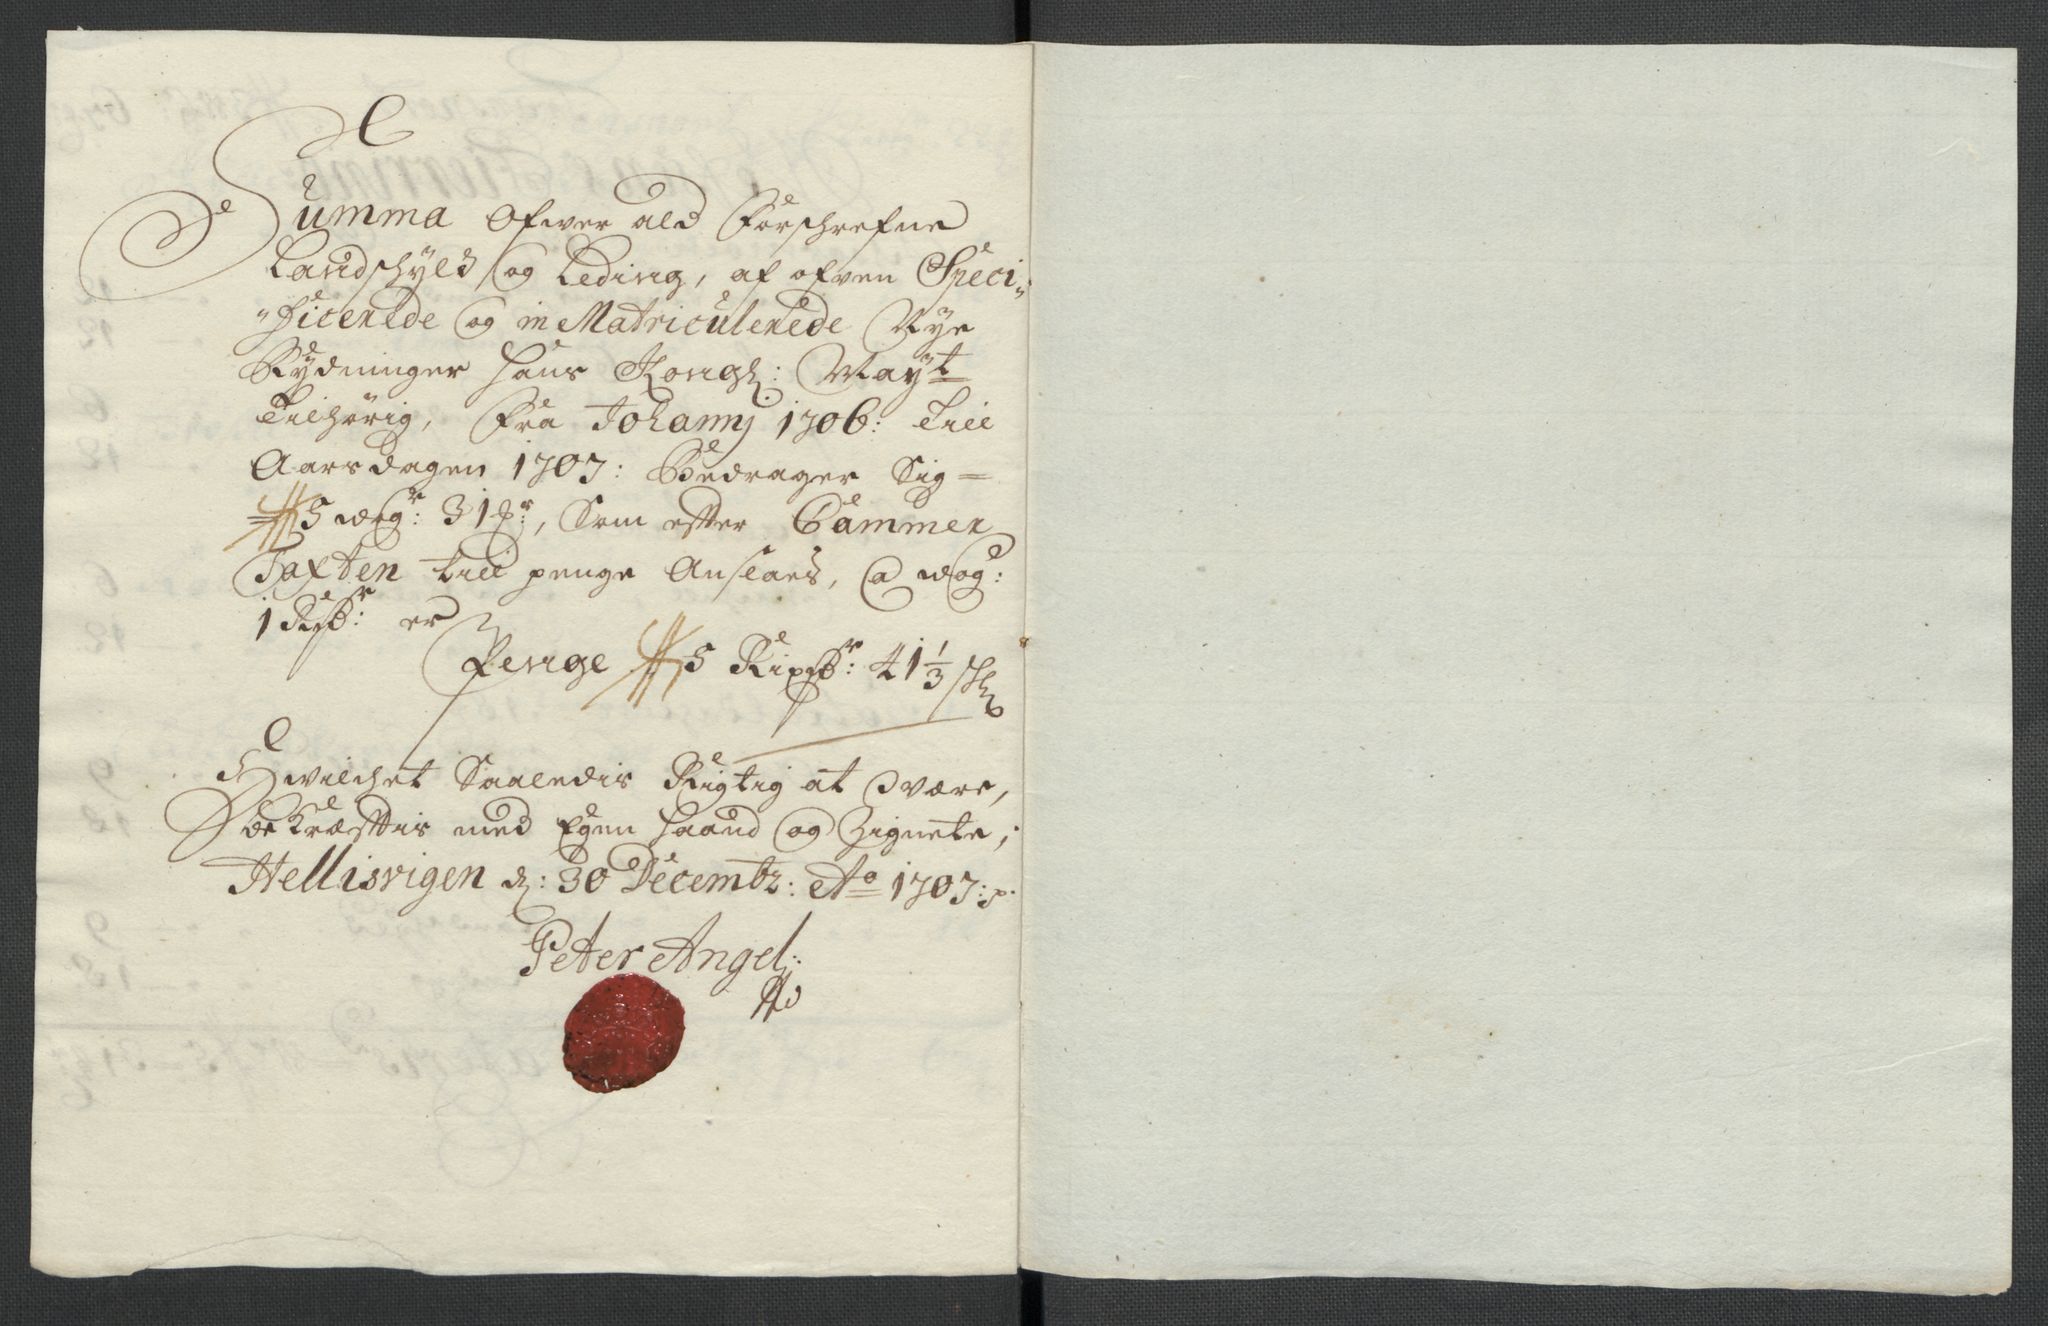 Summa Ofwer ald Forschrefne
Landschyld og Leding, af ofven Speci-
ficerede og in Matriculerede Nye
Rydninger Hans Kongl: Mayt
Tilhörig, Fra Johannj 1706: Till
Aarsdagen 1707: Bedrager Sig =
5 wog: 31 , Som effter Cammer
Taxten till penge Anslaed, a wog:
1 Rdr: er
Penge 5 Rixdr: 41 1/3 sk
Hvilchet Saaledis Rigtig at være,
Bekræfftis med Egen Haand og Zignete,
Hellisvigen d: 30 Decembr: Ao 1707:
Peter Angel: